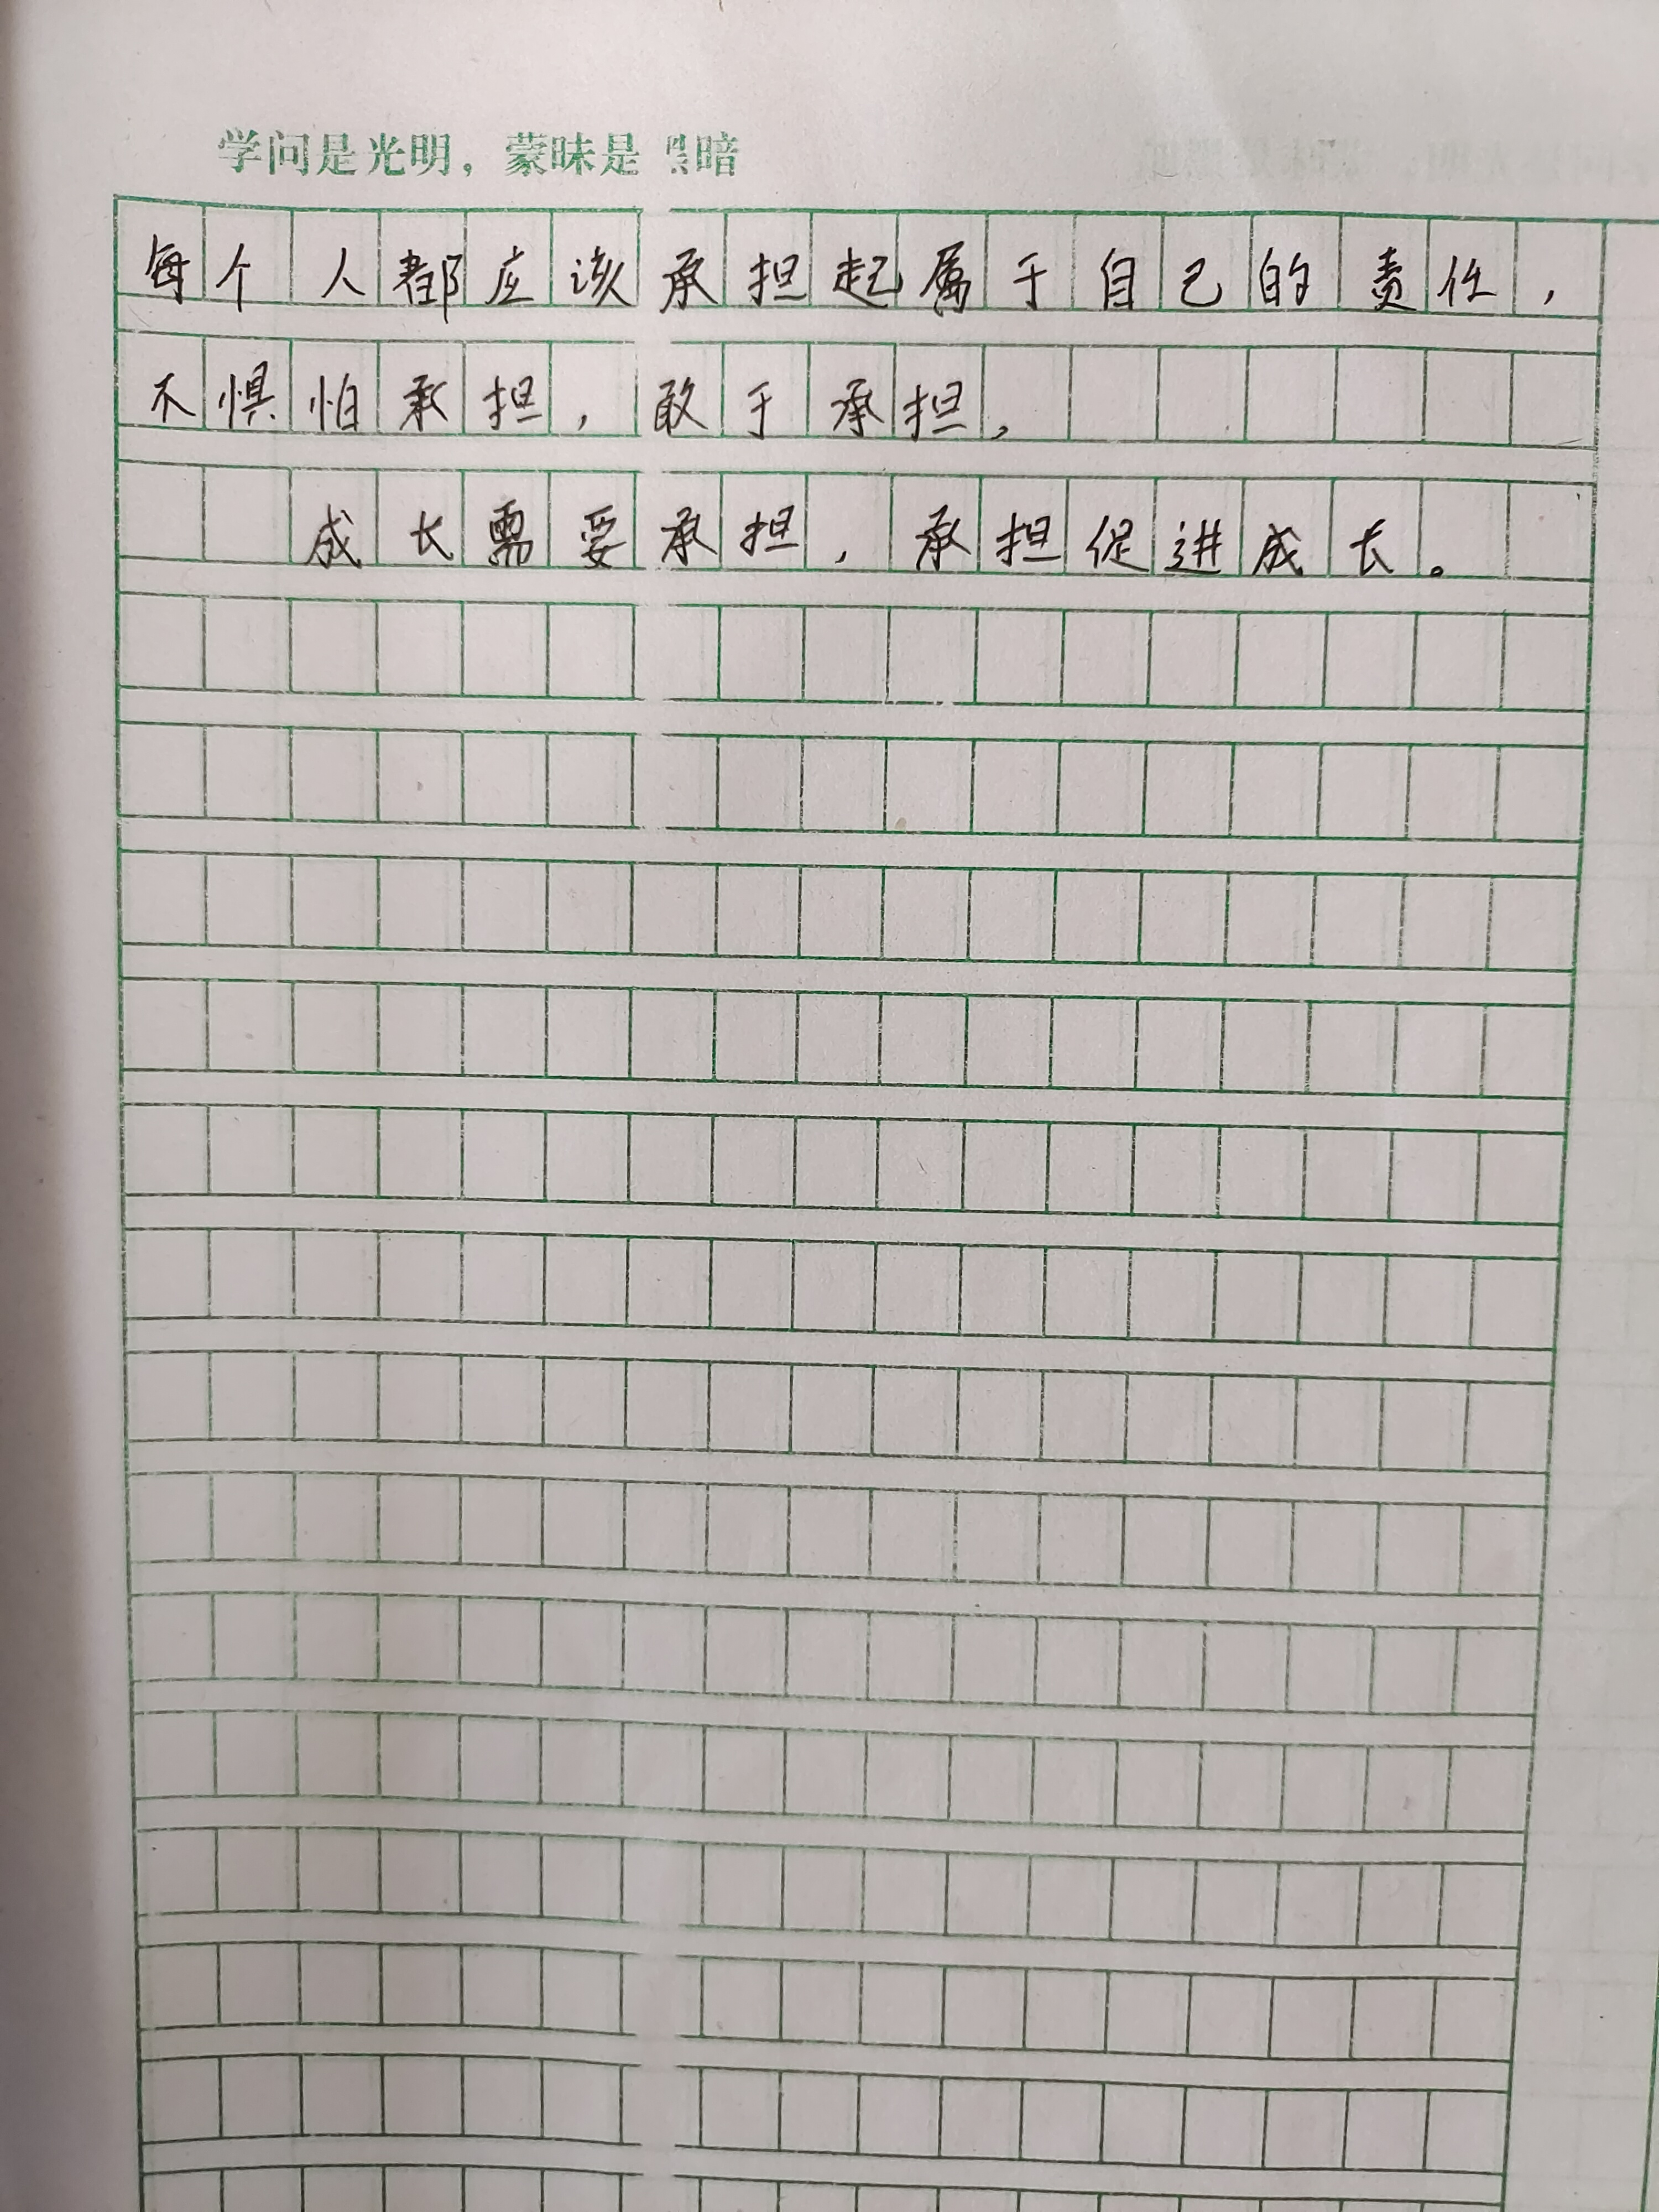 学问是光明，蒙昧是黑暗
每个人都应该承担起属于自己的责任，
不惧怕承担，敢于承担，
成长需要承担，承担促进成长。